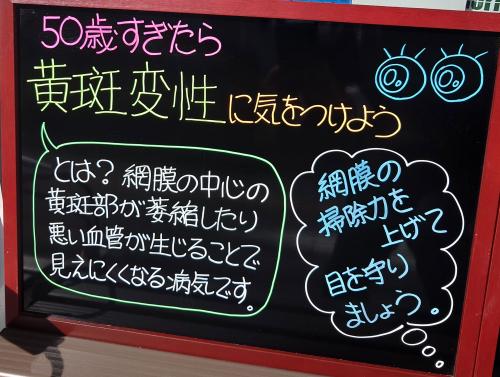 50歳すぎたら
黄斑変性に気をつけよう
とは？網膜の中心の
黄斑部が萎縮したり
悪い血管が生じることで
見えにくくなる病気です。
網膜の
掃除力を
上げて
目を守り
ましょう。